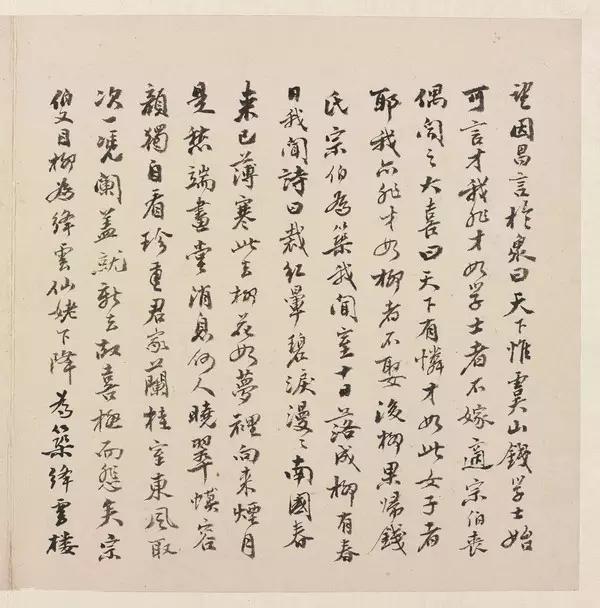 望因昌言於衆曰天下惟虞山錢学士始
可言才我非才如学士者不嫁適宗伯喪
偶聞之大喜曰天下有憐才如此女子者
耶我亦非才如柳者不娶後柳果歸錢
氏宗伯為築我聞室十日落成柳有春
日我聞詩曰裁紅暈碧淚漫〻南國春
来已薄寒此去柳花如夢裡向来煙月
是愁端畫堂消息何人曉翠幙容
顏獨自看珍重君家蘭桂室東風取
次一憑闌蓋就新去故喜極而怨矣宗
伯又目柳為絳雲仙姥下降為築絳雲楼